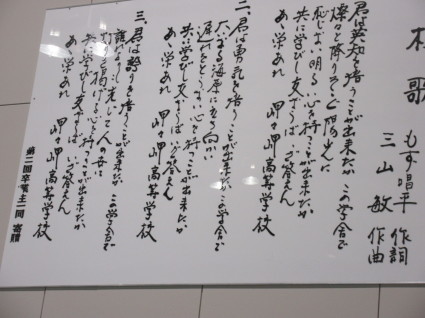 校歌
もず唱平 作詞
三山敏 作曲
一、君は英知を培うことが出来たか この学舎で
燦々と降りそそぐ陽光に
恥じない明るい心を持つことが出来たか
共に学びし友がうたう 答えん
あゝ栄あれ 岬 岬 岬高等学校
二、君は勇気を培うことが出来たか この学舎で
大いなる海原に立ち向い
遅れをとらない心を持つことが出来たか
共に学びし友がうたう 答えん
あゝ栄あれ 岬 岬 岬高等学校
三、君は誇りを培うことが出来たか この学舎で
光して人の世に
灯を掲げる心を持つことが出来たか
共に学びし友がうたう 答えん
あゝ栄あれ 岬 岬 岬高等学校
第二回卒業生一同 寄贈